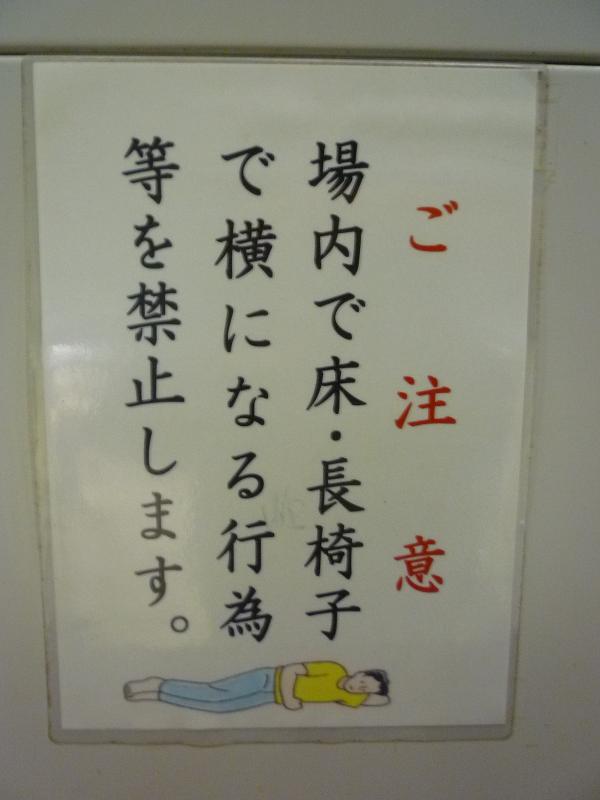 ご注意
場内で床・長椅子
で横になる行為
等を禁止します。